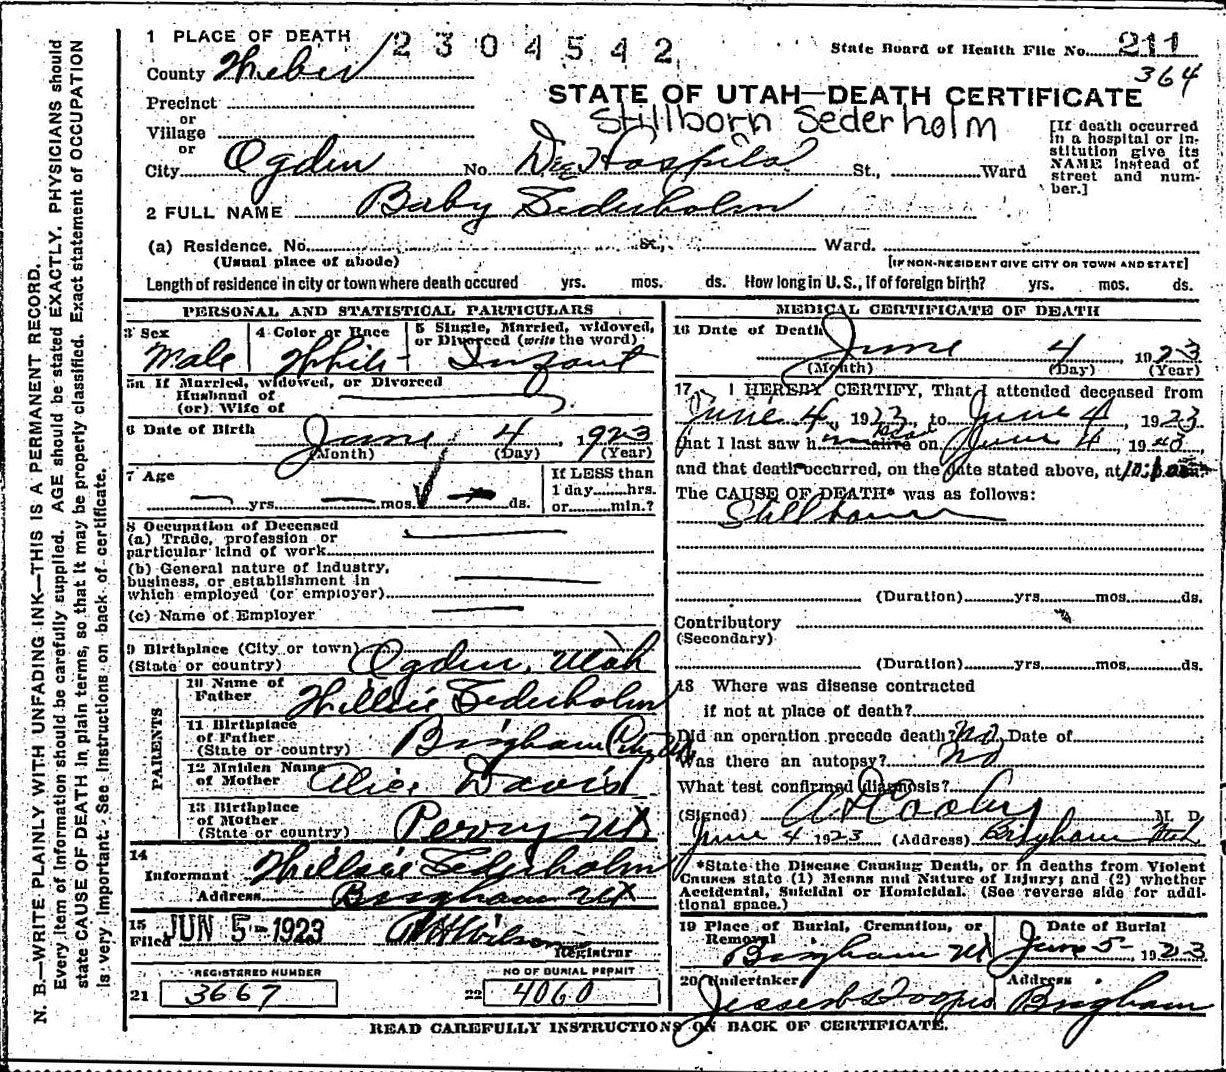 1 PLACE OF DEATH 2304542 State Board of Health File No. 211
364
County Weber
STATE OF UTAH—DEATH CERTIFICATE
Stillborn Sederholm
Precinct
or
Village
or
City Ogden No. Dee Hospital St., Ward
[If death occurred
in a hospital or in-
stitution give its
NAME instead of
street and num-
ber.]
2 FULL NAME Baby Sederholm
(a) Residence. No. St., Ward.
(Usual place of abode) [IF NON-RESIDENT GIVE CITY OR TOWN AND STATE]
Length of residence in city or town where death occured yrs. mos. ds. How long in U. S., if of foreign birth? yrs. mos. ds.
PERSONAL AND STATISTICAL PARTICULARS
3 Sex
Male
4 Color or Race
White
5 Single, Married, widowed,
or Divorced (write the word)
Infant
5a If Married, widowed, or Divorced
Husband of
(or) Wife of
6 Date of Birth June 4 1923
(Month) (Day) (Year)
7 Age
yrs. mos. ds.
If LESS than
1 day hrs.
or min.?
8 Occupation of Deceased
(a) Trade, profession or
particular kind of work
(b) General nature of Industry,
business, or establishment in
which employed (or employer)
(c) Name of Employer
9 Birthplace (City or town)
(State or country) Ogden, Utah
PARENTS
10 Name of
Father Willie Sederholm
11 Birthplace
of Father
(State or country) Brigham City Ut
12 Maiden Name
of Mother Alice Davis
13 Birthplace
of Mother
(State or country) Perry Ut
14
Informant Willie Sederholm
Address Brigham Ut
15
Filed JUN 5 - 1923 Wilson
Registrar
REGISTERED NUMBER
21 3667
NO OF BURIAL PERMIT
22 4060
MEDICAL CERTIFICATE OF DEATH
16 Date of Death June 4 1923
(Month) (Day) (Year)
17 I HEREBY CERTIFY, That I attended deceased from
June 4, 1923, to June 4, 1923
that I last saw h alive on June 4 19
and that death occurred, on the date stated above, at
The CAUSE OF DEATH* was as follows:
Stillborn
(Duration) yrs. mos. ds.
Contributory
(Secondary)
(Duration) yrs. mos. ds.
18 Where was disease contracted
if not at place of death?
Did an operation precede death? No Date of
Was there an autopsy? No
What test confirmed diagnosis?
(Signed) Cooley M. D.
June 4 1923 (Address) Brigham Utah
*State the Disease Causing Death, or in deaths from Violent
Causes state (1) Means and Nature of Injury; and (2) whether
Accidental, Suicidal or Homicidal. (See reverse side for addi-
tional space.)
19 Place of Burial, Cremation, or
Removal
Brigham Ut
Date of Burial
June 5 - 1923
20 Undertaker
Address
Brigham
READ CAREFULLY INSTRUCTIONS ON BACK OF CERTIFICATE.
N. B.—WRITE PLAINLY WITH UNFADING INK—THIS IS A PERMANENT RECORD.
Every item of information should be carefully supplied. AGE should be stated EXACTLY. PHYSICIANS should
state CAUSE OF DEATH in plain terms, so that it may be properly classified. Exact statement of OCCUPATION
is very important. See instructions on back of certificate.